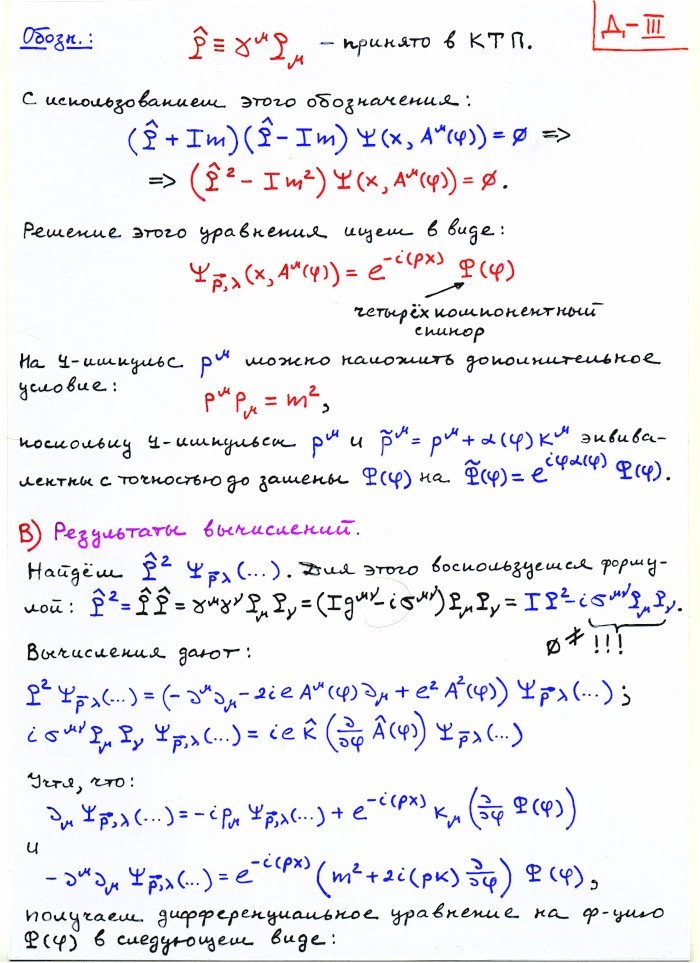 Обозн.: P̂ ≡ γ^μ P_μ – принято в КТП. Д-III
С использованием этого обозначения:
(P̂ + Im)(P̂ – Im) Ψ(x, A^μ(φ)) = ∅ =>
=> (P̂² – Im²) Ψ(x, A^μ(φ)) = ∅.
Решение этого уравнения ищем в виде:
Ψ_{p⃗,λ}(x, A^μ(φ)) = e^{-i(px)} Φ(φ)
четырёхкомпонентный
спинор
На 4-импульс p^μ можно наложить дополнительное
условие:
p^μ p_μ = m²,
поскольку 4-импульсы p^μ и p̃^μ = p^μ + α(φ) k^μ эквива-
лентны с точностью до замены Φ(φ) на Φ̃(φ) = e^{iφα(φ)} Φ(φ).
В) Результаты вычислений.
Найдём P̂² Ψ_{p⃗λ}(...). Для этого воспользуемся форму-
лой: P̂² = P̂P̂ = γ^μ γ^ν P_μ P_ν = (I g^{μν} – iσ^{μν}) P_μ P_ν = I P² – iσ^{μν} P_μ P_ν.
∅ ≠ !!!
Вычисления дают:
P² Ψ_{p⃗λ}(...) = (–∂^μ ∂_μ – 2ie A^μ(φ) ∂_μ + e² A²(φ)) Ψ_{p⃗λ}(...);
iσ^{μν} P_μ P_ν Ψ_{p⃗,λ}(...) = ie k̂ (∂/∂φ Â(φ)) Ψ_{p⃗,λ}(...)
Учтя, что:
∂_μ Ψ_{p⃗,λ}(...) = –i p_μ Ψ_{p⃗,λ}(...) + e^{-i(px)} k_μ (∂/∂φ Φ(φ))
и
–∂^μ ∂_μ Ψ_{p⃗,λ}(...) = e^{-i(px)} (m² + 2i(pk) ∂/∂φ) Φ(φ),
получаем дифференциальное уравнение на ф-цию
Φ(φ) в следующем виде: